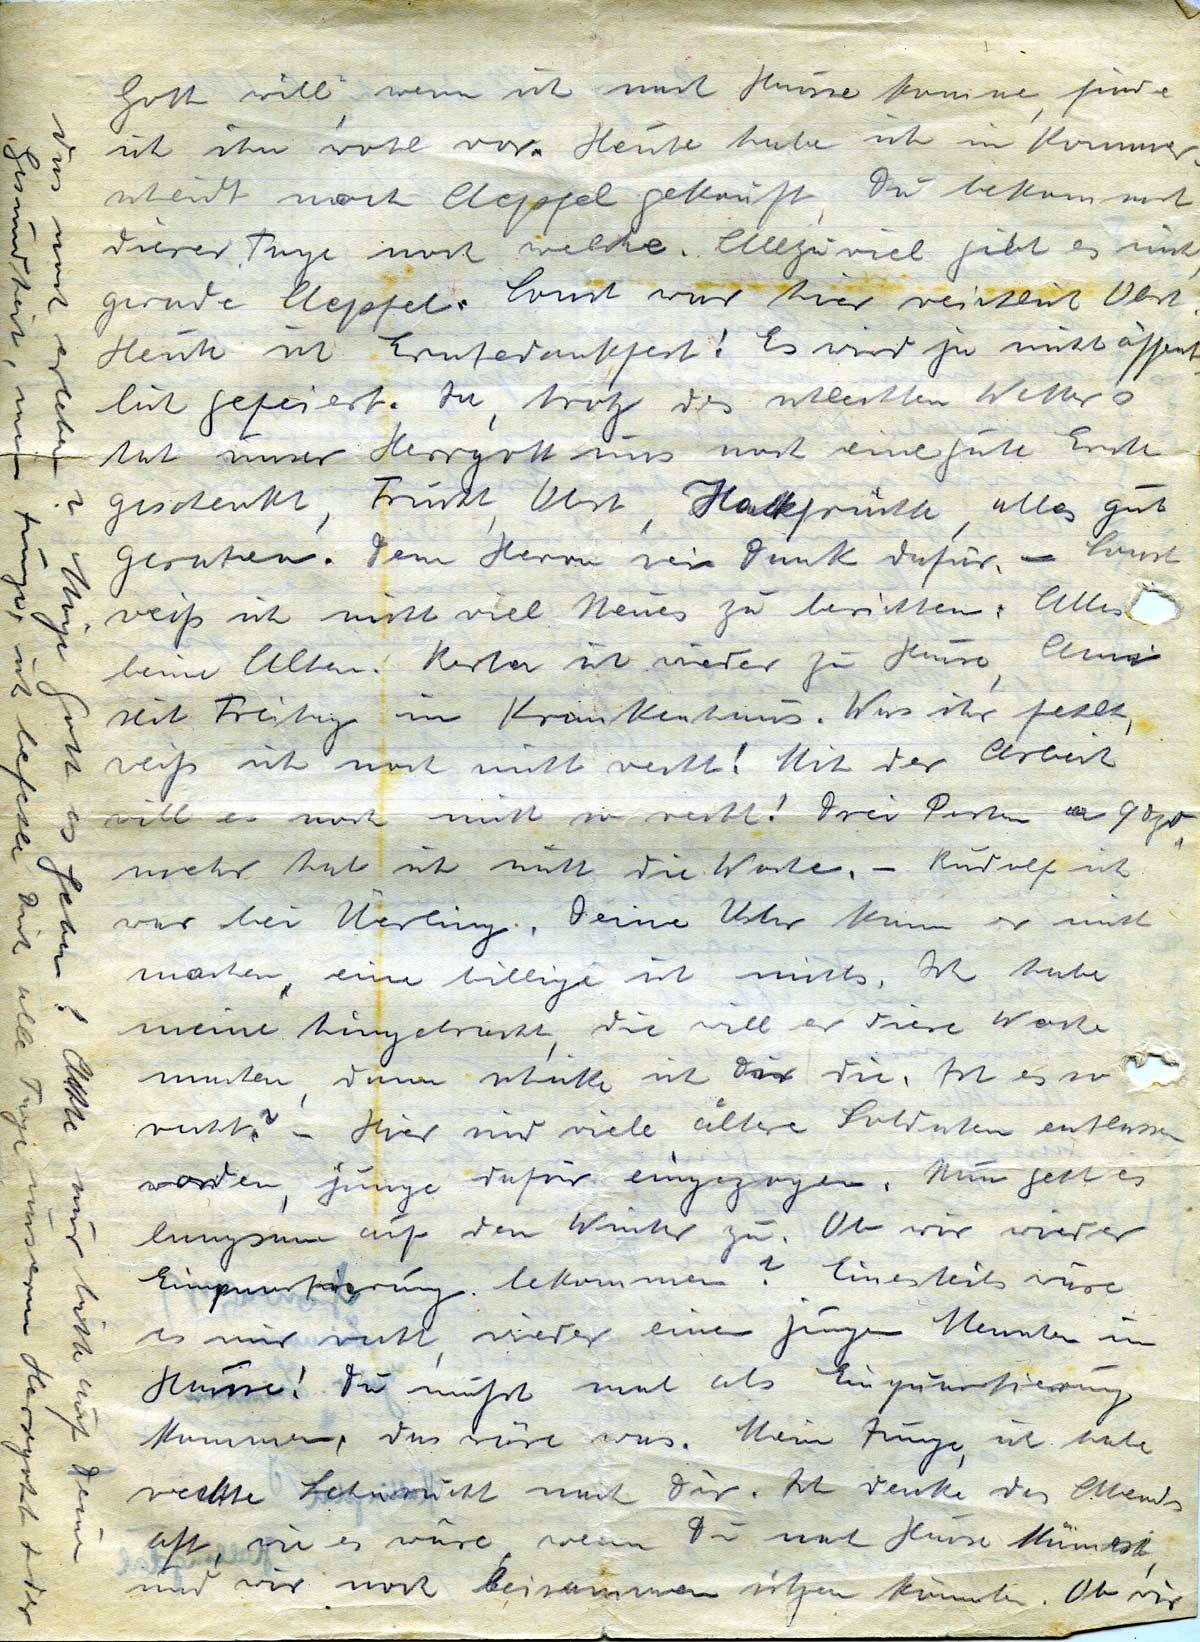 Gott will, wenn ich nach Hause komme, finde
ich ihn wohl vor. Heute habe ich in Kommer-
scheidt noch Aepfel gekauft, Du bekommst
dieser Tage noch welche. Allzuviel gibt es nicht
gerade Aepfel. Sonst war hier reichlich Obst.
Heute ist Erntedankfest! Es wird ja nicht öffent-
lich gefeiert. Ja, trotz des schlechten Wetters
hat unser Herrgott uns noch eine gute Ernte
geschenkt, Frucht, Obst, Hackfrüchte, alles gut
geraten. Dem Herrn sei Dank dafür. – Sonst
weiß ich nicht viel Neues zu berichten. Alles
beim Alten. ist wieder zu Hause,
seit Freitag im Krankenhaus. Was ihr fehlt,
weiß ich noch nicht recht! Mit der Arbeit
will es noch nicht so recht! Drei Posten a 9 Dzd.
mehr hat ich nicht die Woche. – Rudolf ich
war bei Uerling. Deine Uhr kann er nicht
machen, eine billige ist nichts. Ich habe
meine hingebracht, die will er diese Woche
machen, dann schicke ich Dir die. Ist es so
recht? – Hier sind viele ältere Soldaten entlassen
worden, junge dafür eingezogen. Nun geht es
langsam auf den Winter zu. Ob wir wieder
Einquartierung bekommen? Einesteils wäre
es mir recht, wieder einen jungen Menschen im
Hause! Du müßt mal als Einquartierung
kommen, das wäre was. Mein Junge, ich habe
rechte Sehnsucht nach Dir. Ich denke des Abends
oft, wie es wäre, wenn Du nach Hause kämest,
und wir noch beisammen sitzen könnten. Ob wir
das noch erleben? Möge Gott es geben! Achte nur bitte auf Deine
Gesundheit, mein Junge, ich befehle Dich alle Tage unserem Herrgott